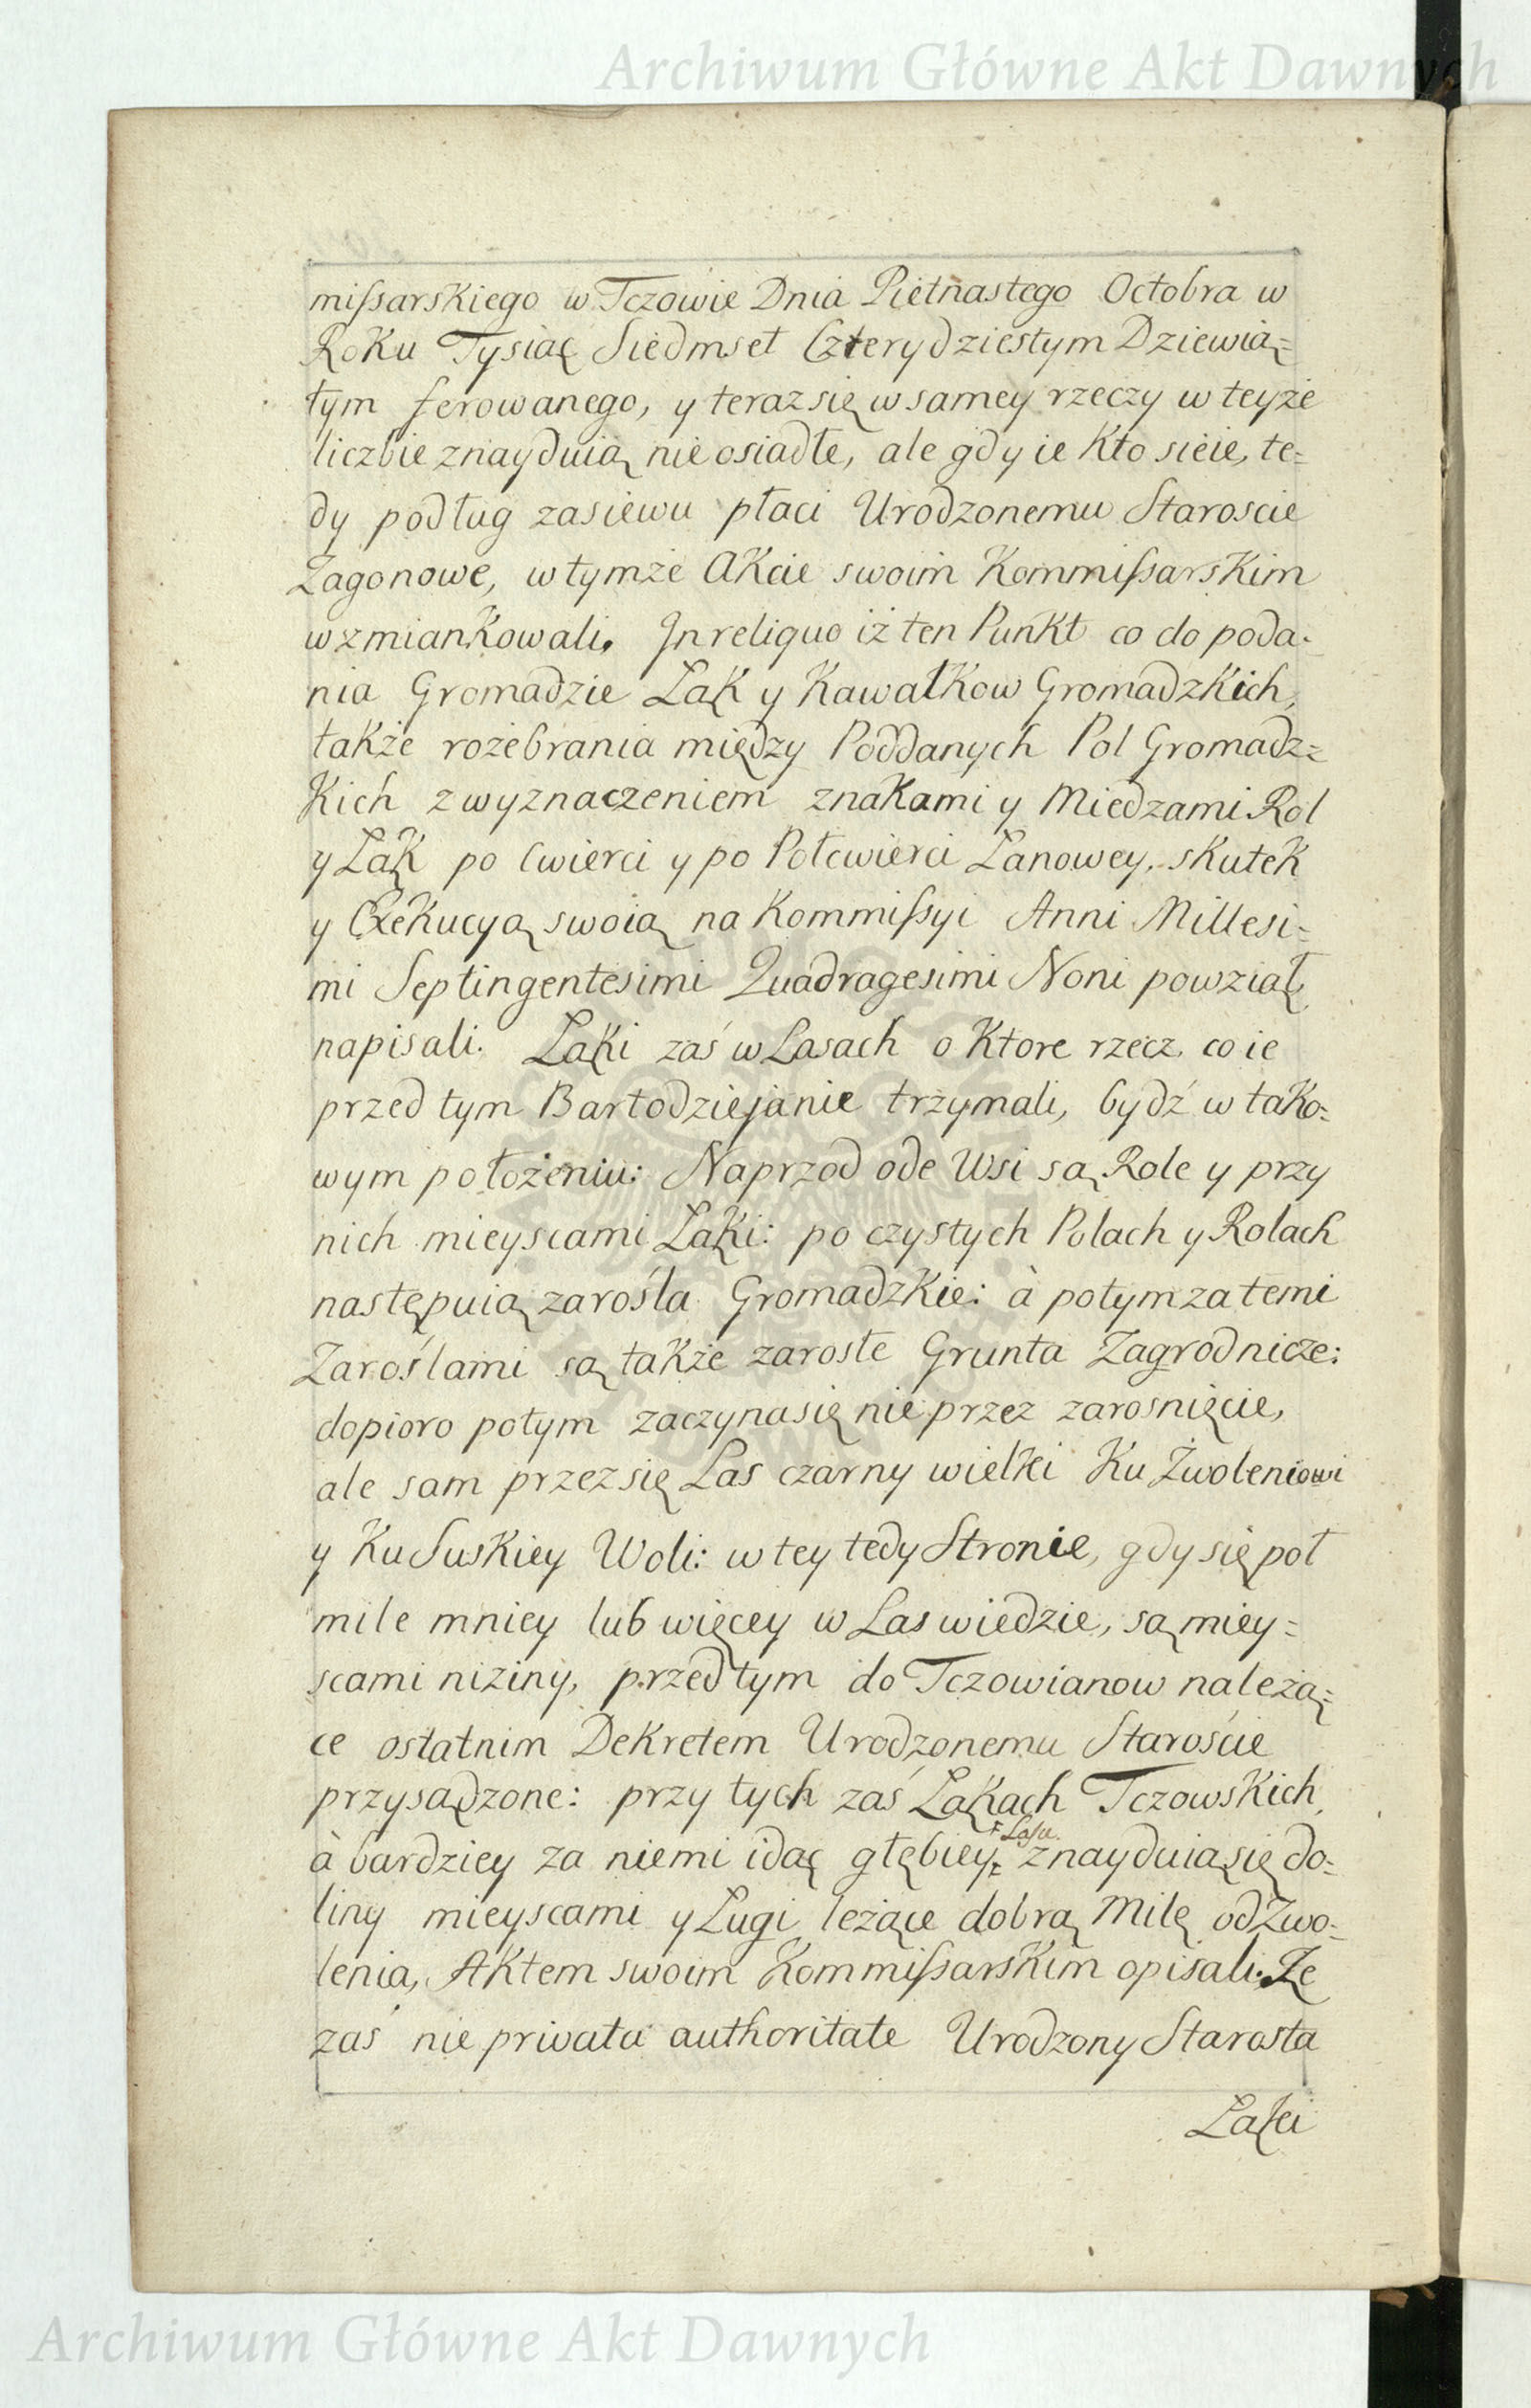 Archiwum Główne Akt Dawnych
miſsarskiego w Tczowie Dnia Pietnastego Octobra w
Roku Tysiąc Siedmset Czterydziestym Dziewią=
tym ferowanego, y teraz się w samey rzeczy w teyże
liczbie znayduią nie osiadłe, ale gdy ie kto sieie, te=
dy podług zasiewu płaci Urodzonemu Staroscie
Zagonowe, w tymże Akcie swoim Kommiſsarskim
wzmiankowali. In reliquo iż ten Punkt co do poda=
nia Gromadzie Łąk y Kawałkow Gromadzkich,
także rozebrania między Poddanych Pol Gromadz=
kich z wyznaczeniem znakami y Miedzami Rol
y Łąk po Cwierci y po Połcwierci Łanowey, skutek
y Exekucyą swoią na Kommiſsyi Anni Millesi=
mi Septingentesimi Quadragesimi Noni powziął
napisali. Łąki zaś w Lasach o ktore rzecz, co ie
przed tym Bartodziejanie trzymali, bydź w tako=
wym położeniu: Naprzod ode Wsi są Role y przy
nich mieyscami Łąki: po czystych Polach y Rolach
następuią zarośla Gromadzkie: à potym za temi
Zaroślami są także zarosłe Grunta Zagrodnicze:
dopioro potym zaczyna się nie przez zarosnięcie,
ale sam przez się Las czarny wielki Ku Zwoleniowi
y Ku Suskiey Woli: w tey tedy Stronie, gdy się poł
mile mniey lub więcey w Las wiedzie, są miey=
scami niziny, przed tym do Tczowianow należą=
ce ostatnim Dekretem Urodzonemu Staroście
przysądzone: przy tych zaś Łąkach Tczowskich,
à bardziey za niemi idąc głębiey znayduią się do=
Lasu.
liny mieyscami y Ługi leżące dobrą Milę od Zwo=
lenia, Aktem swoim Kommiſsarskim opisali. Ze
zaś nie privata authoritate Urodzony Starosta
Łąki
Archiwum Główne Akt Dawnych